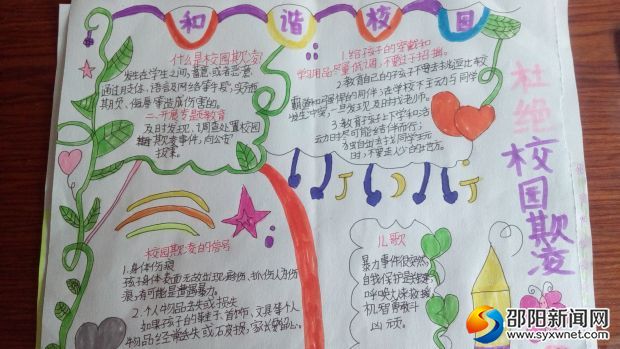 和谐校园
什么是校园欺凌
发生在学生之间,蓄意或恶意
通过肢体、语言及网络等手段,实施
欺负、侮辱等造成伤害的。
二、开展专题教育
及时发现、调查处置校园
欺凌事件,向公安
报案。
1.给孩子的穿戴和
学用品尽量低调,不要过于招摇。
2.教育自己的孩子不要去找
同学
发生冲突,一旦发现及时找老师。
3.教育孩子上下学和活
动时尽可能结伴而行;
独自出去找同学玩
时,不要走人少的地方。
杜绝校园欺凌
校园欺凌的信号
1.身体伤痕
孩子身体表面无故出现瘀伤、抓伤人为伤
痕,有可能是遭遇暴力。
2.个人物品丢失或损失
如果孩子的鞋子、首饰、文具等个人
物品经常丢失或
儿歌
暴力事件很突然
自我保护是
呼唤人来救援
机智勇敢斗
凶顽。
邵阳新闻网
www.syxwnet.com